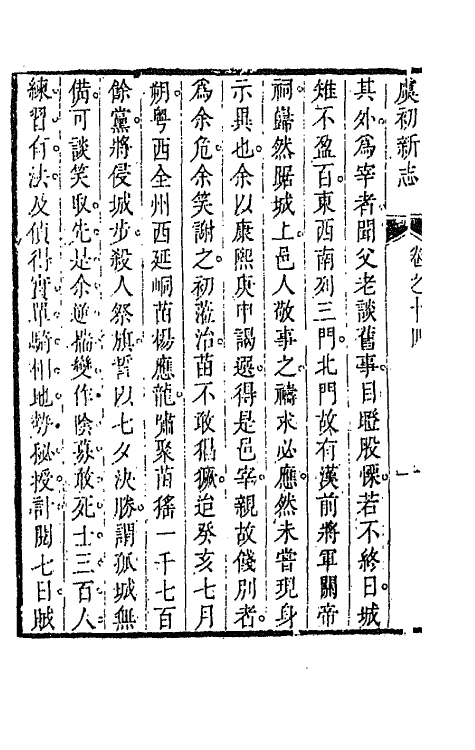 虞初新志
卷之十四
一
其外爲宰者聞父老談舊事目瞪股慄若不終日城
雉不盈百東西南列三門北門故有漢前將軍關帝
祠巋然踞城上邑人敬事之禱求必應然未嘗現身
示異也余以康熙庚申謁選得是邑宰親故餞別者
爲余危余笑謝之初蒞治苗不敢猖獗迨癸亥七月
朔粵西全州西延峒苗楊應龍嘯聚苗猺一千七百
餘黨將侵城步殺人祭旗誓以七夕決勝謂孤城無
備可談笑取先是余逆揣變作陰募敢死士三百人
練習有法及偵得實單騎相地勢秘授計閱七日賊